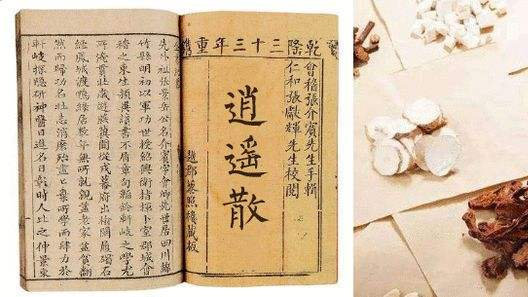 乾隆三十三年重
會稽張介賓先生手輯
仁和張獻輝先生校閱
逍遙散
越郡藜照樓藏板
先外祖張景岳公名介賓字會卿先世居四川綿
竹縣明初以軍功世授紹興衛指揮卜室郡城會
稽之東生穎異讀書不屑章句韜鈐軒岐之學尤
所淹貫壯歲遊燕冀間從戎幕府出榆關履碣石
經鳳城渡鴨綠居數年無所就親益老家益貧翻
然而歸功名壯志消磨殆盡乃棄所學而肆力於
軒岐探隱研神醫日進名日彰時人比之仲景東